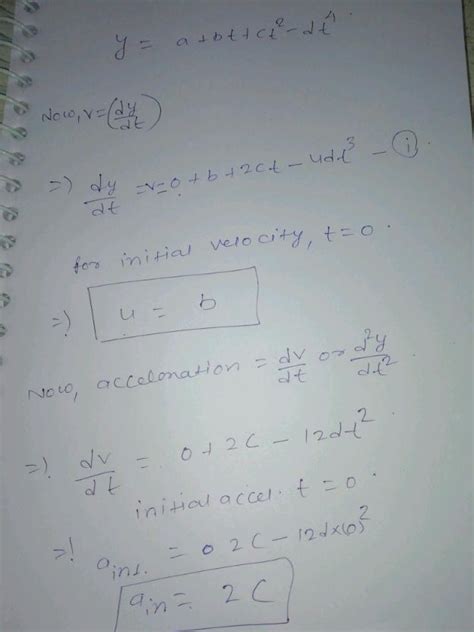 y = a+bt+ct²-dt⁴
Now, v=(dy/dt)
=) dy/dt =v=0+b+2ct-4dt³ - (i)
for initial velocity, t=0.
=) u = b
Now, acceleration = dv/dt or d²y/dt².
=). dv/dt = 0+2C-12dt²
initial accel. t=0.
=! a_int. = 0 2C-12dx(0)²
a_in = 2C